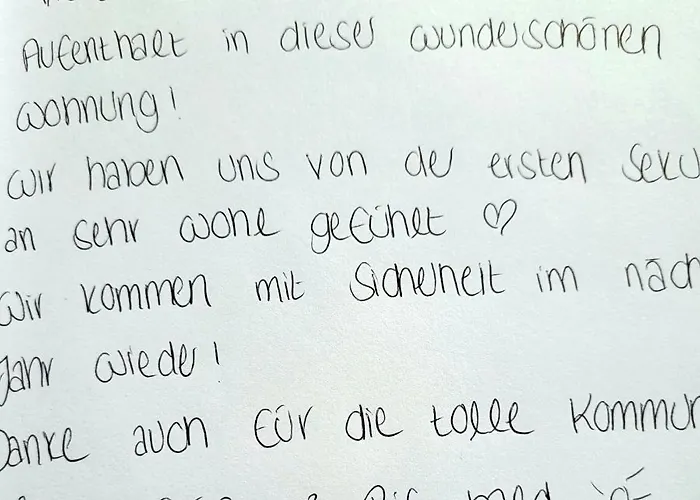 Aufenthalt in dieser wunderschönen
Wohnung!
Wir haben uns von der ersten Seku
an sehr wohl gefühlt ♡
Wir kommen mit Sicherheit im näch
Jahr wieder!
Danke auch für die tolle Kommun